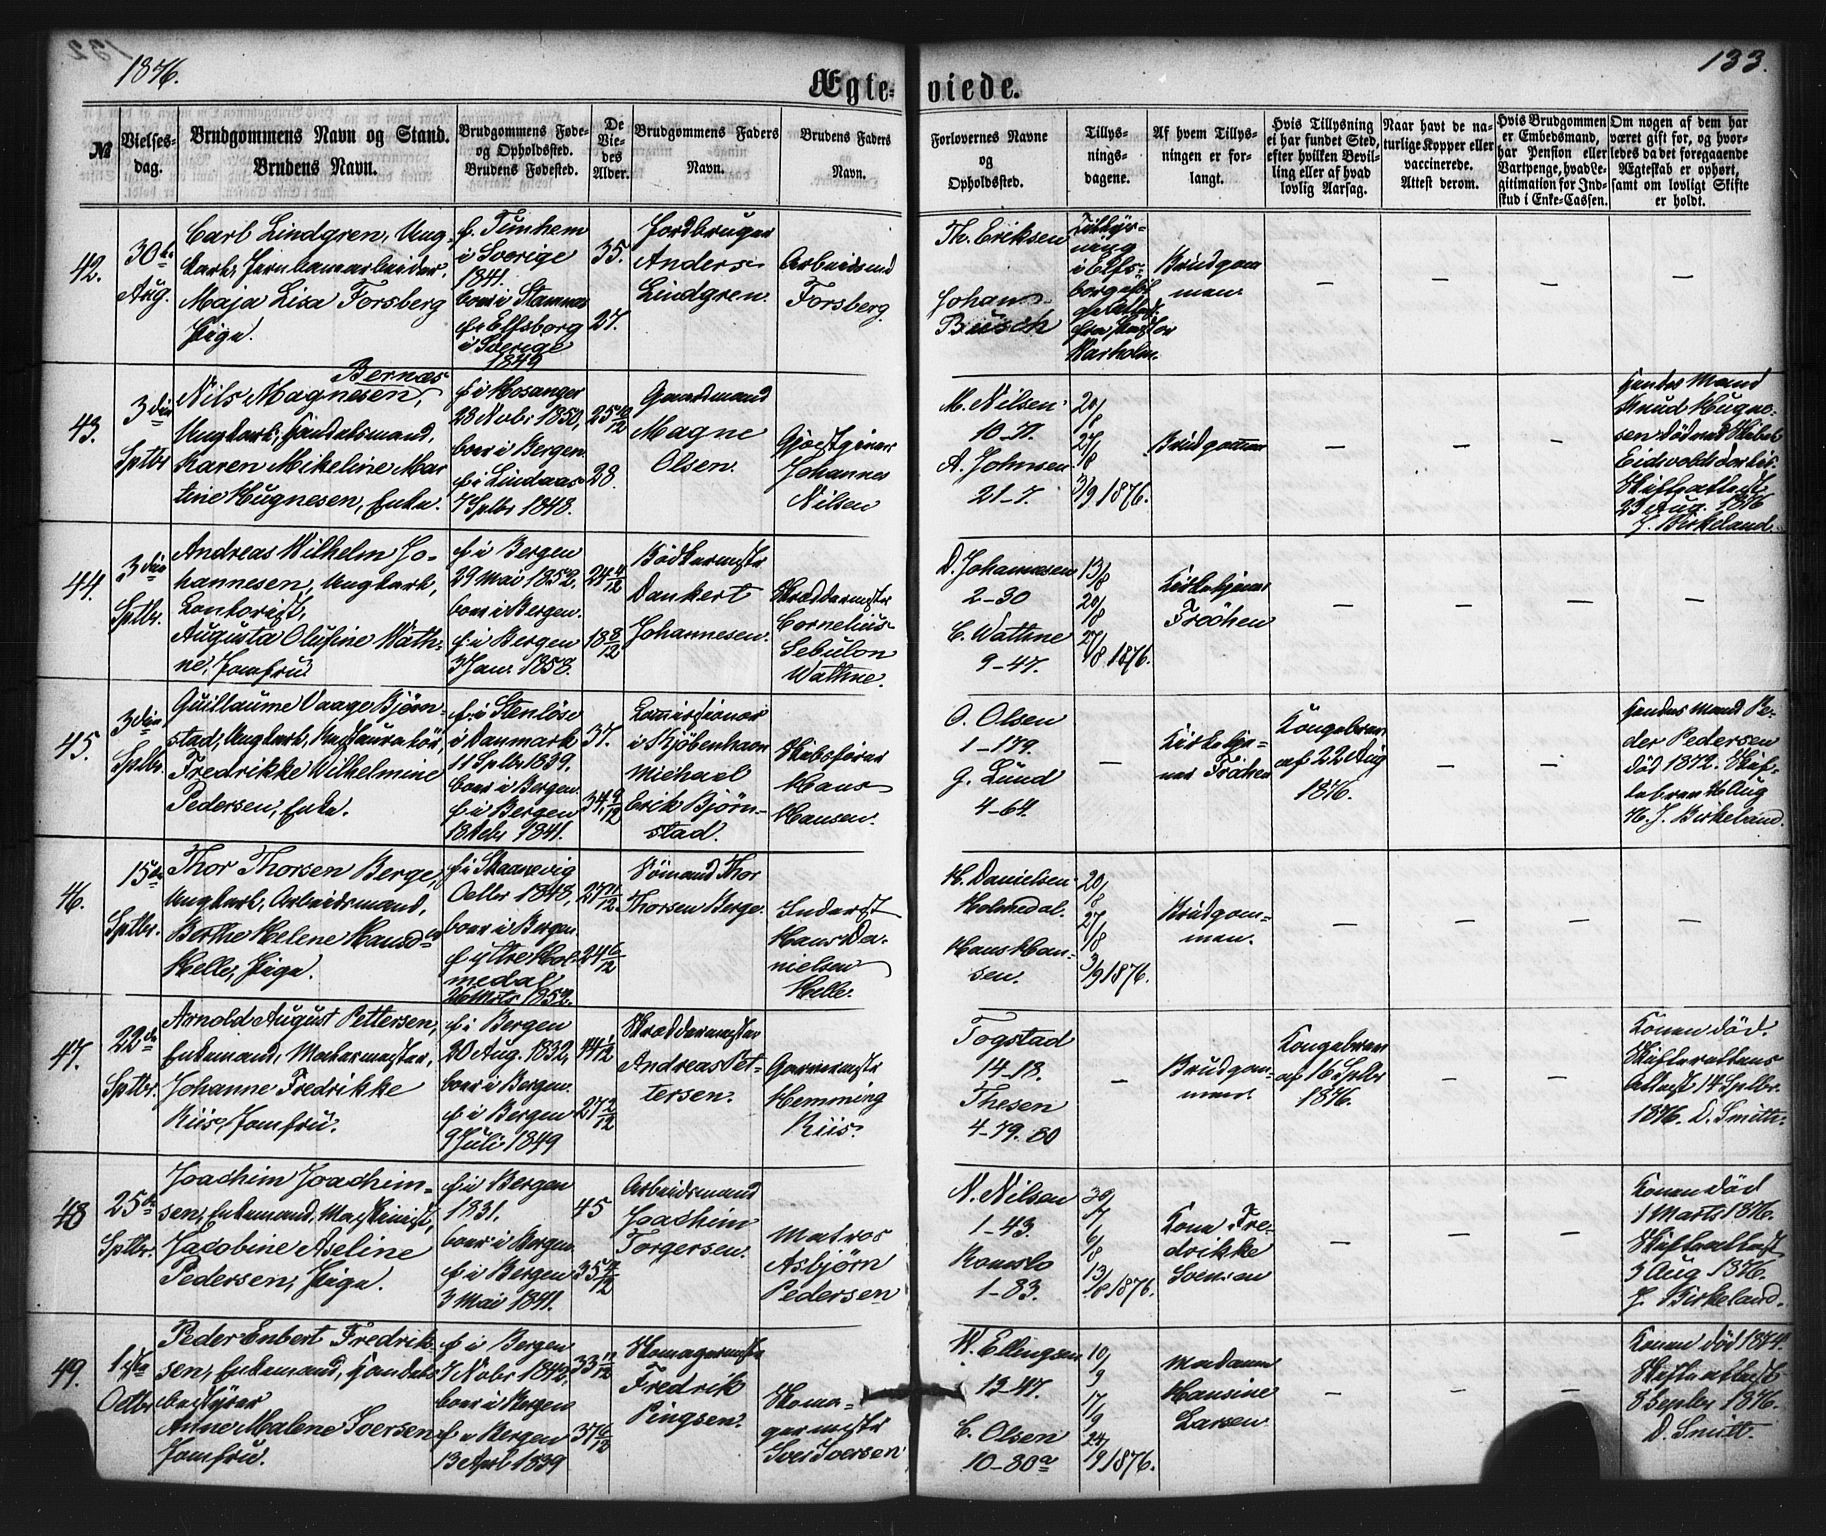 1876.
133.
Ægteviede.
№
Vielsesdag.
Brudgommens Navn og Stand.
Brudens Navn.
Brudgommens Føde-
og Opholdssted.
Brudens Fødested.
De
Vie-
des
Alder.
Brudgommens Faders
Navn.
Brudens Faders
Navn.
Forlovernes Navne
og
Opholdssted.
Tillys-
nings-
dagene.
Af hvem Tillys-
ningen er for-
langt.
Hvis Tillysning
ei har fundet Sted,
efter hvilken Bevil-
ling eller af hvad
lovlig Aarsag.
Naar havt de na-
turlige Kopper eller
vaccinerede.
Attest derom.
Hvis Brudgommen
er Embedsmand,
har Pension eller
Vartpenge, hvad Le-
gitimation for Ind-
skud i Enke-Cassen.
Om nogen af dem har
været gift før, og hvor-
ledes da det foregaaende
Ægteskab er ophørt,
samt om lovligt Skifte
er holdt.
42.
30te
Aug.
Carl Lindgren, Ung-
karl, Jernbanearbeider,
Maja Lisa Forsberg
Pige.
f. i Tunhem
i Sverige
1841.
boer i Stamnæs
f. i Elfsborg
i Sverige
1849
35.
27.
Jordbruger
Anders
Lindgren.
Arbeidsmd
Forsberg
Th. Eriksen
Johan
Busch
Brudgom
men.
— — — —
43.
3die
Sptbr
Bernæs
Nils Magnesen,
Ungkarl, Handelsmand,
Karen Mikeline Mar
tine Hugnesen, Enke.
f. i Hosanger
28 Novbr 1850,
boer i Bergen
f. i Lindaas
7 Sptbr 1848.
25 10/12
28.
Gaardmand
Magne
Olsen.
Gjæstgiver
Johannes
Nilsen
M. Nilsen
10-31.
A. Johnsen
21-7.
20/8
27/8
3/9 1876.
Brudgommen
— — —
Hendes Mand
Knud Hugne-
sen død ved Skibet
Eidsvolds Forlis.
Skifteattest
29 Aug. 1876
J. Birkeland.
44.
3die
Sptbr.
Andreas Wilhelm Jo-
hannesen, Ungkarl,
Contorist,
Augusta Olufine Wath-
ne, Jomfru.
f. i Bergen
29 Mai 1852,
boer i Bergen.
f. i Bergen
3 Jan. 1858.
24 4/12
18 8/12
Bødkermester
Dankert
Johannesen.
Skræddermester
Cornelius
Sebulon
Wathne.
D. Johannesen
2-30
C. Wathne
9-47.
13/8
20/8
27/8 1876.
Kirketjener
Frøchen
— — — —
45.
3die
Sptbr.
Guillaume Vaage Bjørn-
stad, Ungkarl, Restauratør,
Fredrikke Wilhelmine
Pedersen, Enke.
f. i Stenløse
i Danmark
11 Sptbr 1839.
boer i Bergen.
f. i Bergen
1841.
37.
34 9/12
i Kjøbenhavn
Michael
Erik Bjørn-
stad.
Skibsfører
Hans
Hansen.
O. Olsen
1-179.
G. Lund
4-64.
—
Kirketje-
ner Frøchen
Kongebrev
af 22 Aug
1876.
— —
Hendes Mand Pe-
der Pedersen
død 1872. Skif-
tebrev 26 Aug
H. J. Birkeland.
46.
15de
Sptbr.
Thor Thorsen Berge,
Ungkarl, Arbeidsmand,
Berthe Helene Hansd.
Helle, Pige.
f. i Skaanevig
Octbr 1848,
boer i Bergen.
f. ytre Hol-
medal
26 Marts 1852.
27 11/12
24 6/12
Sømand Thor
Thorsen Berge.
Inderst
Hans Da-
nielsen
Helle.
H. Danielsen
Holmedal.
Hans Han-
sen.
20/8
27/8
3/9 1876.
Brudgom-
men.
— — — —
47.
22de
Sptbr.
Arnold August Pettersen,
Enkemand, Malermester,
Johanne Fredrikke
Riis, Jomfru.
f. i Bergen
20 Aug. 1832,
boer i Bergen.
f. i Bergen
9 Juli 1849
44 1/12
27 2/12
Skræddermester
Andreas Pet-
tersen.
Garvermester
Hemming
Riis.
Togstad
14-18.
Thesen
4-79. 80
—
Brudgom-
men.
Kongebrev
af 16 Sptbr
1876.
— —
Konen død
Skifterettens
Attest 14 Sptbr.
1876. D. Smitt.
48
25de
Sptbr.
Joachim Joachim-
sen, Enkemand, Maskinist,
Jacobine Aseline
Pedersen, Pige.
f. i Bergen
1831.
boer i Bergen
f. i Bergen
3 Mai 1841.
45
35
Arbeidsmand
Joachim
Torgersen.
Matros
Asbjørn
Pedersen
N. Nilsen
1-43.
1-83.
30/7
6/8
13/8 1876.
Kone Fre-
drikke
Soensen
— — —
Konen død
1 Marts 1876.
Skifteattest
5 Aug 1876.
J. Birkeland.
49.
1ste
Octbr
Peder Enbert Fredrik-
sen, Enkemand, Handels
bestyrer
Anne Malene Soersen
Jomfru.
f. i Bergen
7 Novbr 1842,
boer i Bergen
f. i Bergen
13 April 1839
33 11/12
Skomagermester
Fredrik
Pingsen.
Skoma-
germester
Soersen
W. Ellingsen
13-47.
C. Olsen
10-80a
10/9
17/9
24/9 1876.
Madame
Hansine
Larsen
— — —
Konen død 1874.
Skifteattest
8 Septbr 1876.
D. Smitt.